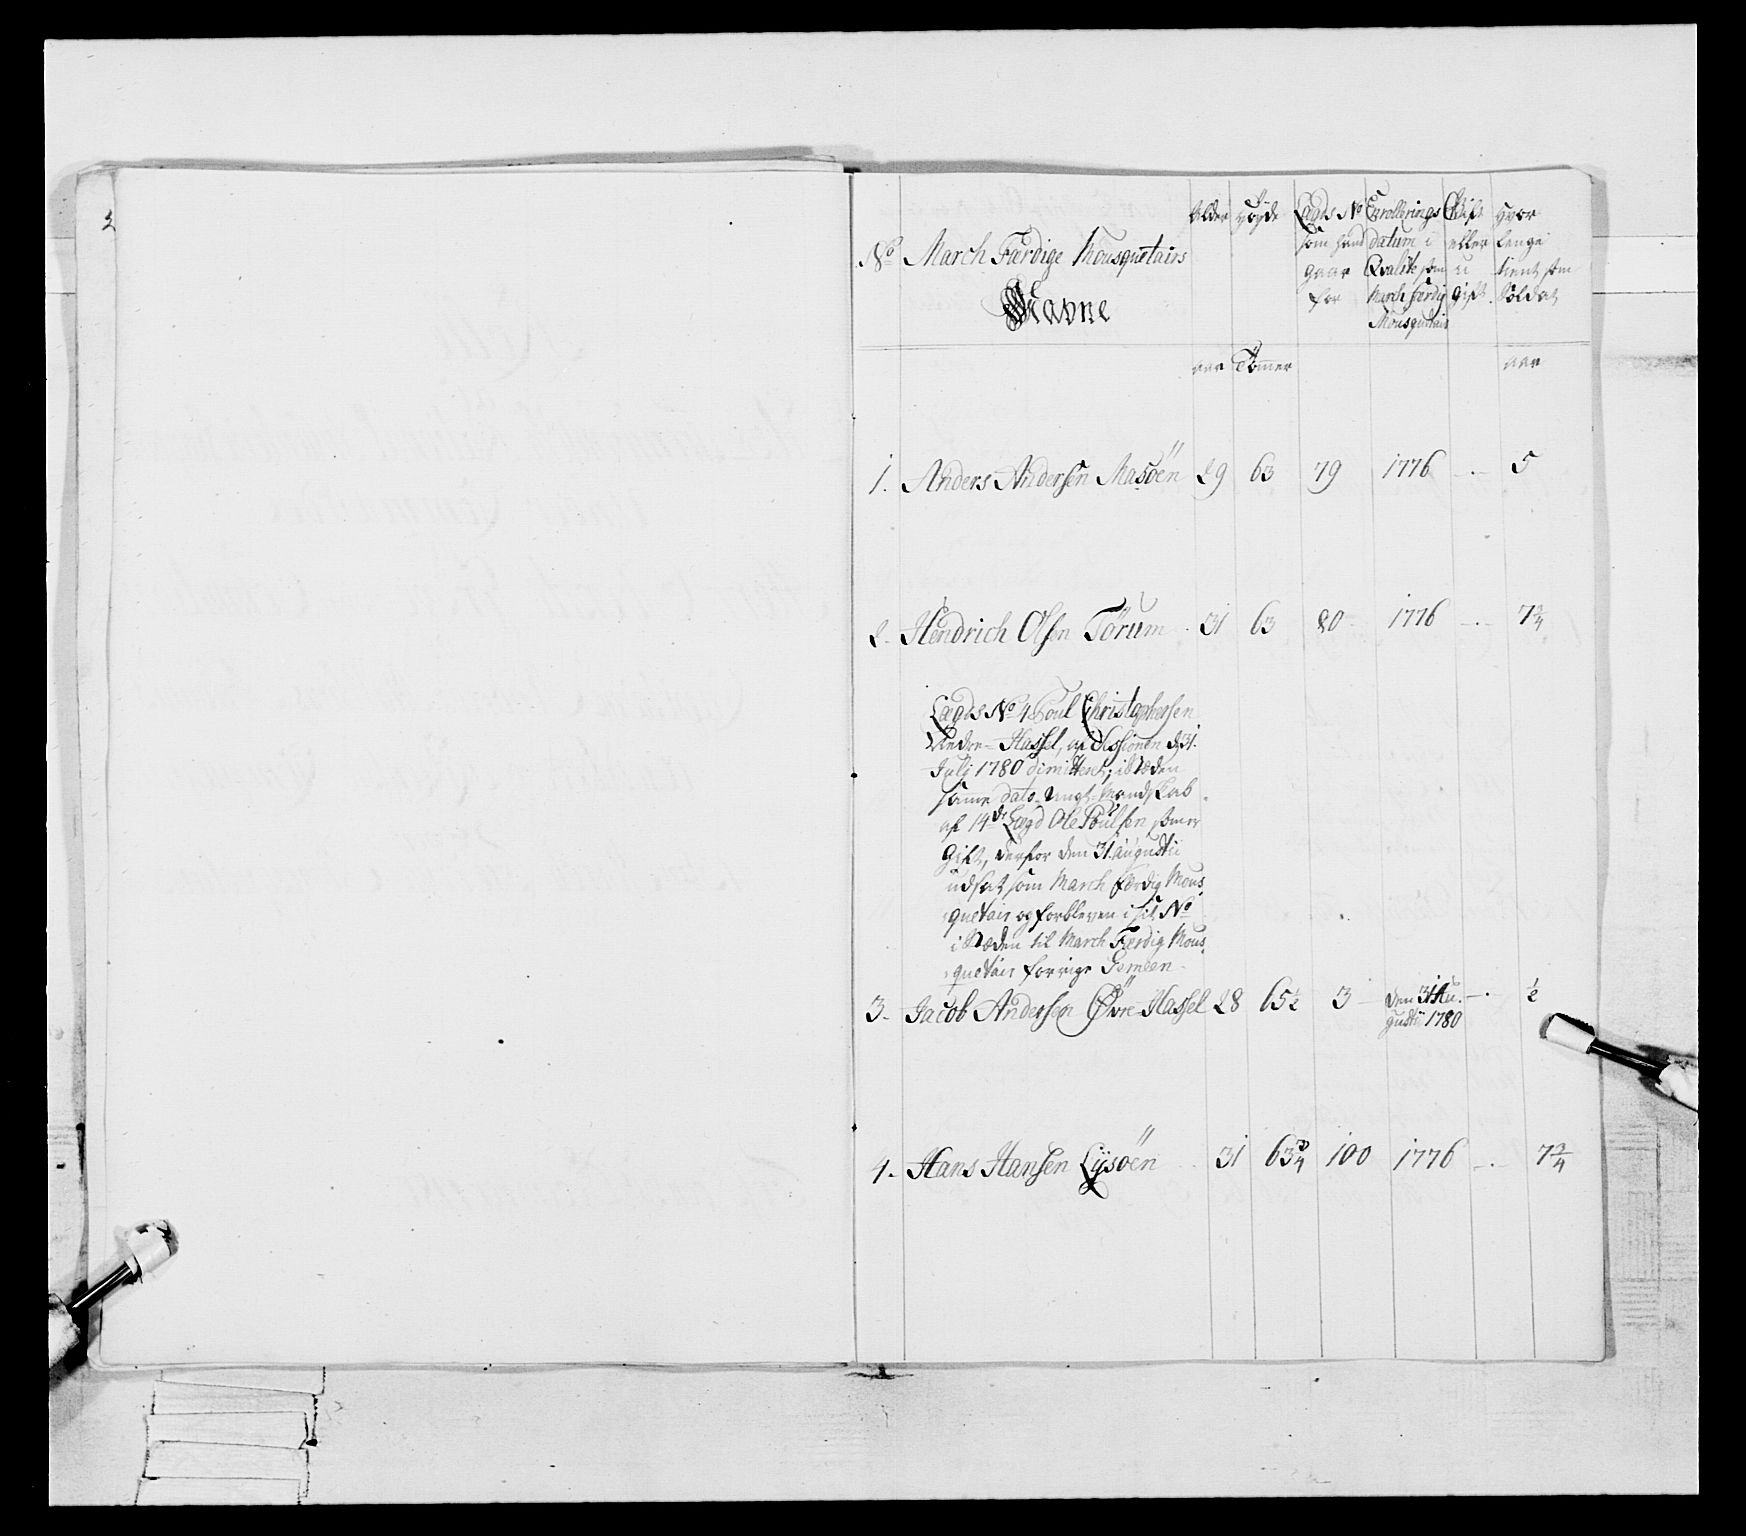 No March Færdige Mousquetairs
Navne
Alder
Høyde
Lægds No som hand gaar for
Enrollerings datum i Qvalite som March færdig Mousquetair
Gift eller u gift
Hvor lenge tient som Soldat
aar Tommer aar
1. Anders Andersen Masöen 29 63 79 1776 -.- 5
2. Hendrich Olsen Törum 31 63 80 1776 -.- 7 3/4
Lægds No 4 Poul Christophersen
Nedre-Hassel, af Sessionen d 31.
Julj 1780 dimitteret; i Stæden
samme dato Ungt-Mandskab
af 14de Lægd Ole Poulsen som er
Gift, derfor den 31. augustii
udsat som March færdig Mous-
quetair og forbleven i sit No
i Stæden til March Færdig Mous-
quetair forrige Gemeen
3. Jacob Andersen Øvre-Hassel 28 65 1/2 3 den 31 Au- -.- 1/2
gustii 1780
4. Hans Hansen Lysöen 31 63 3/4 100 1776 -.- 7 3/4